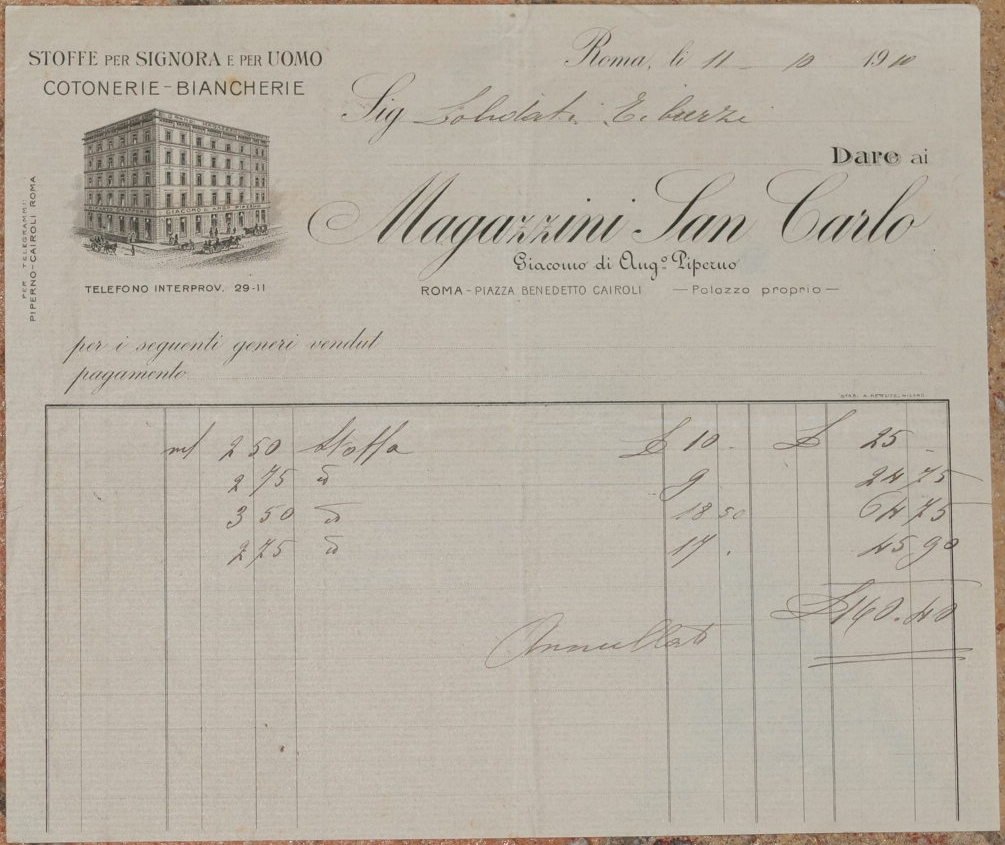 STOFFE PER SIGNORA E PER UOMO
COTONERIE-BIANCHERIE
GIACOMO DI ANG. PIPERNO
PER TELEGRAMMI:
PIPERNO-CAIROLI ROMA
TELEFONO INTERPROV. 29-11
Roma, li 11 - 10 1910
Sig Tiburzi
Dare ai
Magazzini San Carlo
Giacomo di Angº Piperno
ROMA - PIAZZA BENEDETTO CAIROLI — Palazzo proprio —
per i seguenti generi vendut
pagamento
STAB. A. MILANO
mt 2 50 Stoffa £ 10 - £ 25 -
2 75 id 9 24 75
3 50 id 18 50 64 75
2 75 id 17 . 45 90
£ 160.40
Annullato